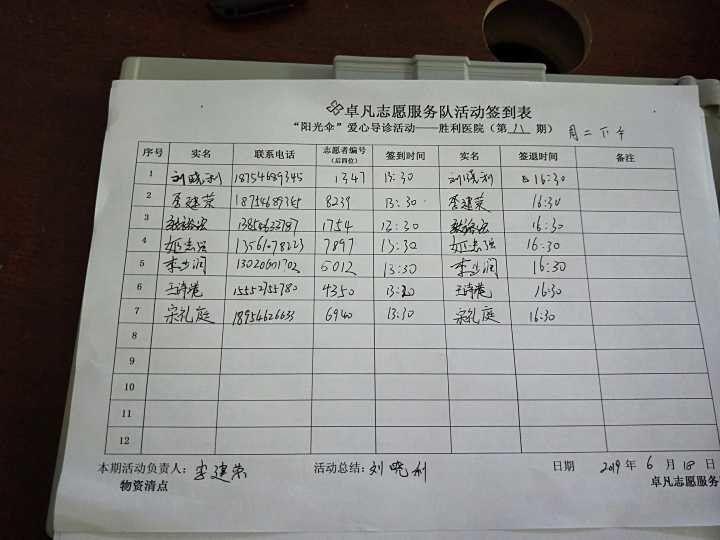 卓凡志愿服务队活动签到表
“阳光伞”爱心导诊活动——胜利医院（第 期） 周二下午
序号 实名 联系电话 志愿者编号（后四位） 签到时间 实名 签退时间 备注
1 刘晓利 18754689345 1347 13:30 刘晓利 16:30
2 李建荣 8239 13:30 李建荣 16:30
3 1754 13:30 16:30
4 7897 13:30 16:30
5 5012 13:30 16:30
6 王诗苑 15552755780 4350 13:30 王诗苑 16:30
7 宋礼庭 18954626633 6940 13:30 宋礼庭 16:30
8
9
10
11
12
本期活动负责人：李建荣 活动总结：刘晓利 日期 2019 年 6 月 18 日
物资清点 卓凡志愿服务